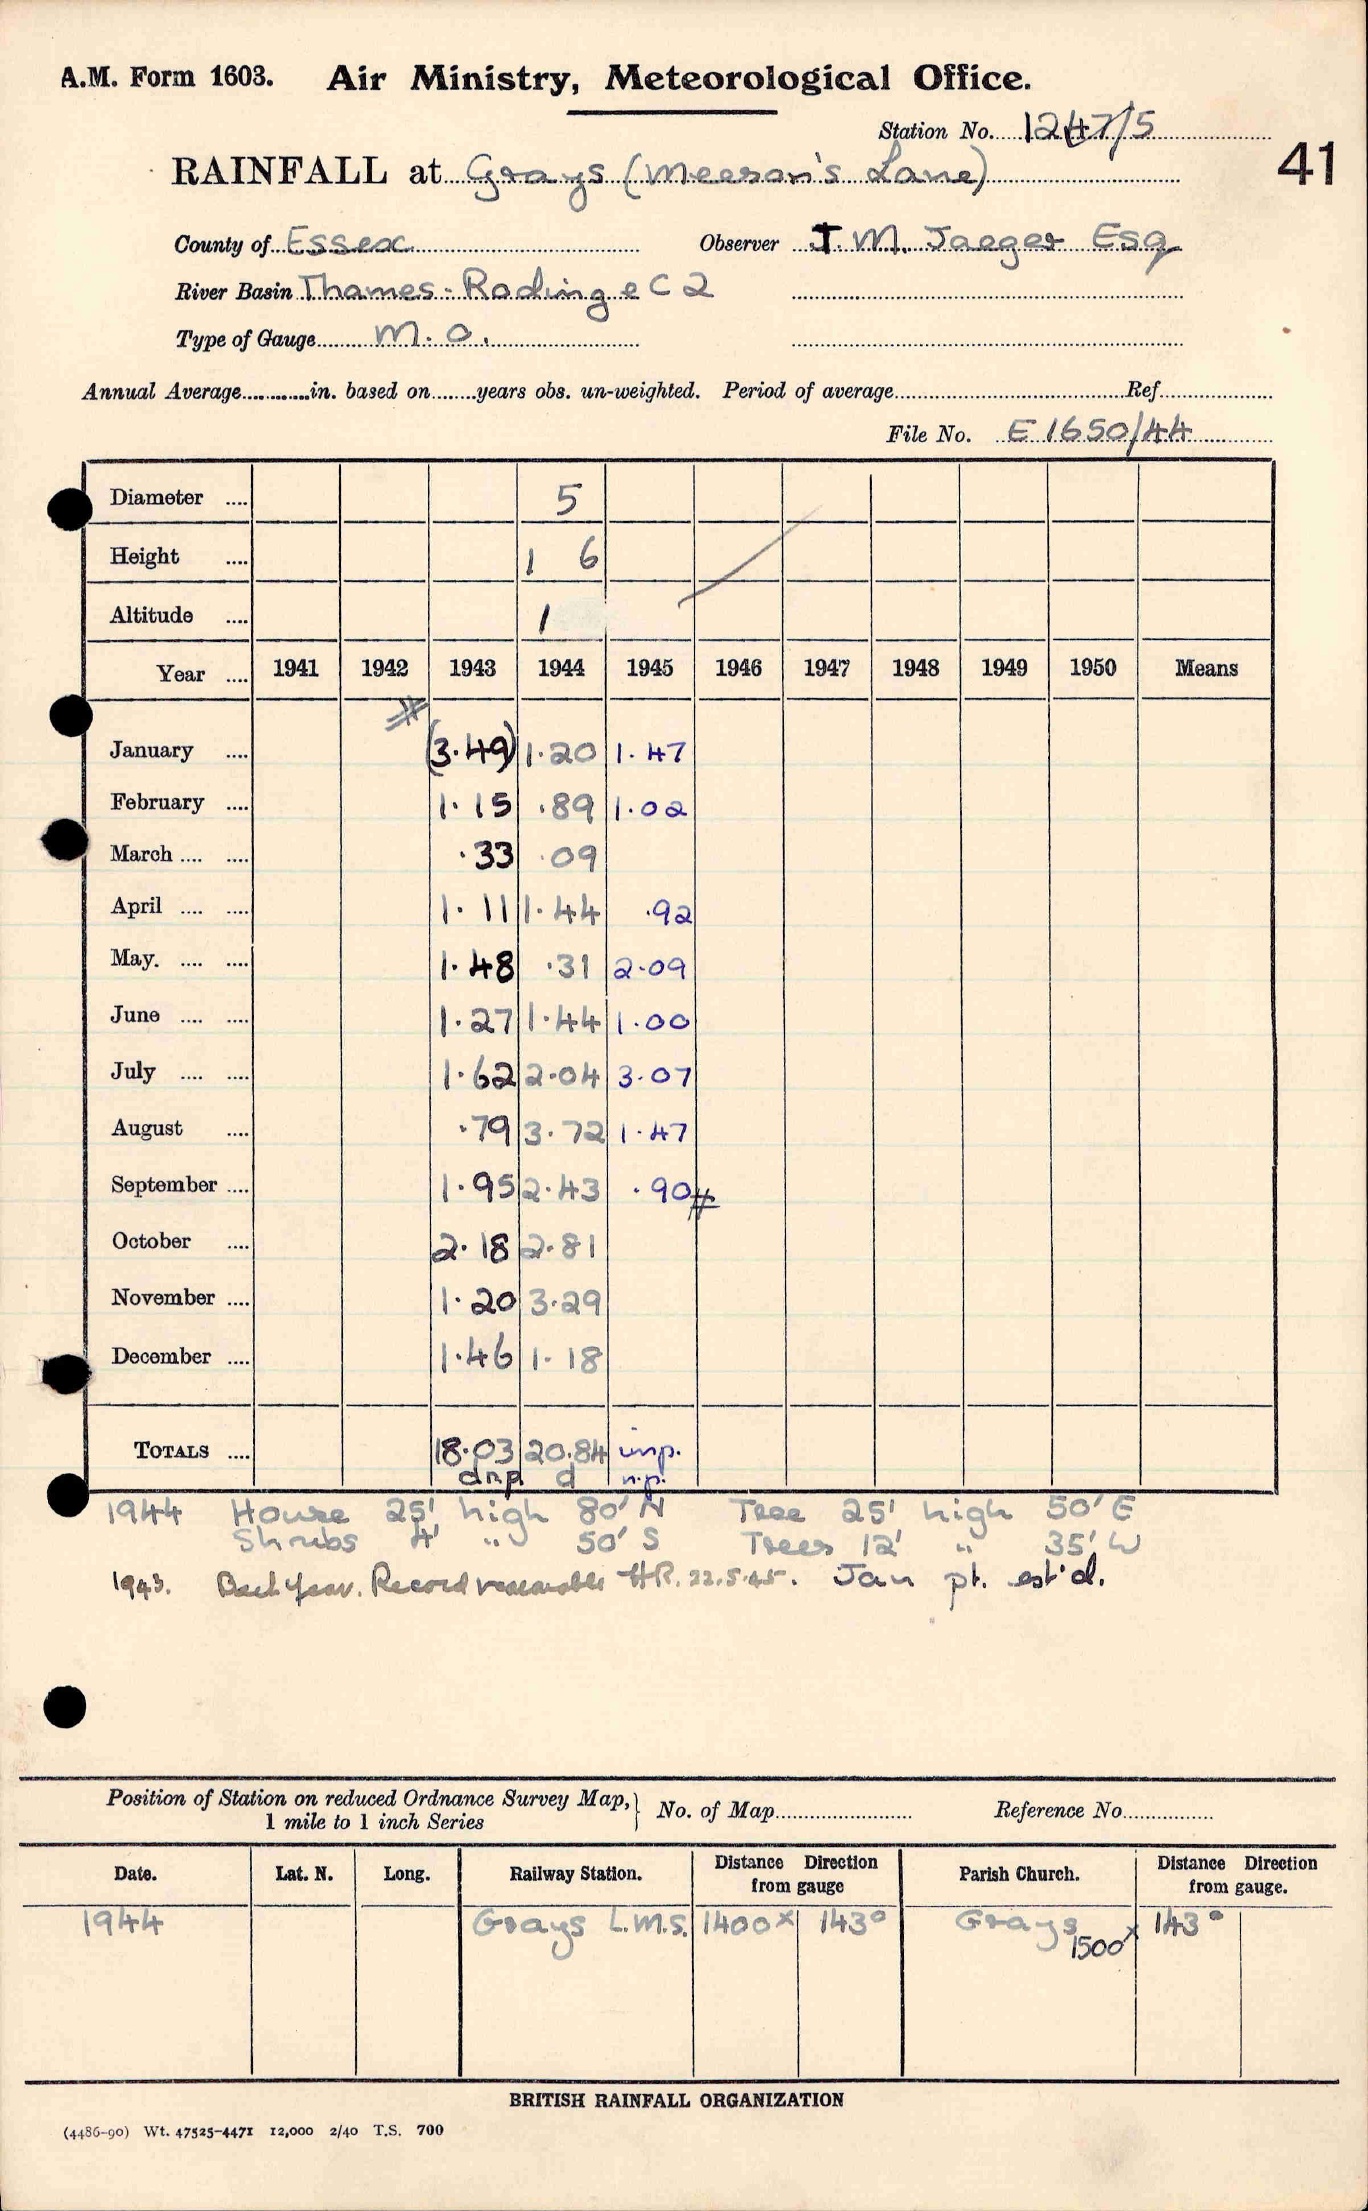 A.M. Form 1603. Air Ministry, Meteorological Office.
Station No. 1247/5
41
RAINFALL at Grays (Meeson's Lane)
County of Essex Observer J. M. Jaeger Esq
River Basin Thames-Roding e C2
Type of Gauge M.O.
Annual Average in. based on years obs. un-weighted. Period of average Ref.
File No. E 1650/44
Diameter 5
Height 1 6
Altitude 1
Year 1941 1942 1943 1944 1945 1946 1947 1948 1949 1950 Means
January (3.49) 1.20 1.47
February 1.15 .89 1.02
March .33 .09
April 1.11 1.44 .92
May. 1.48 .31 2.09
June 1.27 1.44 1.00
July 1.62 2.04 3.07
August .79 3.72 1.47
September 1.95 2.43 .90 #
October 2.18 2.81
November 1.20 3.29
December 1.46 1.18
TOTALS 18.03 20.84 inp.
dnp. d n.p.
1944 House 25' high 80' N Tree 25' high 50' E
Shrubs 4' " 50' S Trees 12' " 35' W
1943. Back year. Record reasonable HR. 22.5.45. Jan pt. est'd.
Position of Station on reduced Ordnance Survey Map, 1 mile to 1 inch Series } No. of Map Reference No.
Date. Lat. N. Long. Railway Station. Distance Direction from gauge Parish Church. Distance Direction from gauge.
1944 Grays L.M.S. 1400x 143° Grays 1500x 143°
BRITISH RAINFALL ORGANIZATION
(4486-90) Wt. 47525-4471 12,000 2/40 T.S. 700